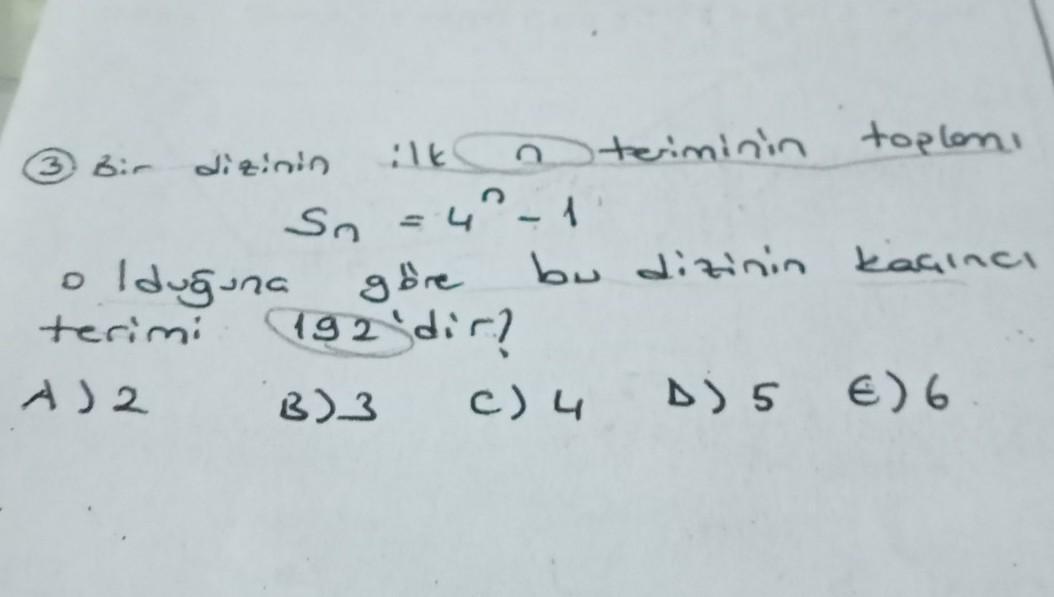 ③ Bir dizinin ilk n teriminin toplamı
Sn = 4ⁿ - 1
olduğuna göre bu dizinin kaçıncı
terimi 192'dir?
A) 2 B) 3 C) 4 D) 5 E) 6